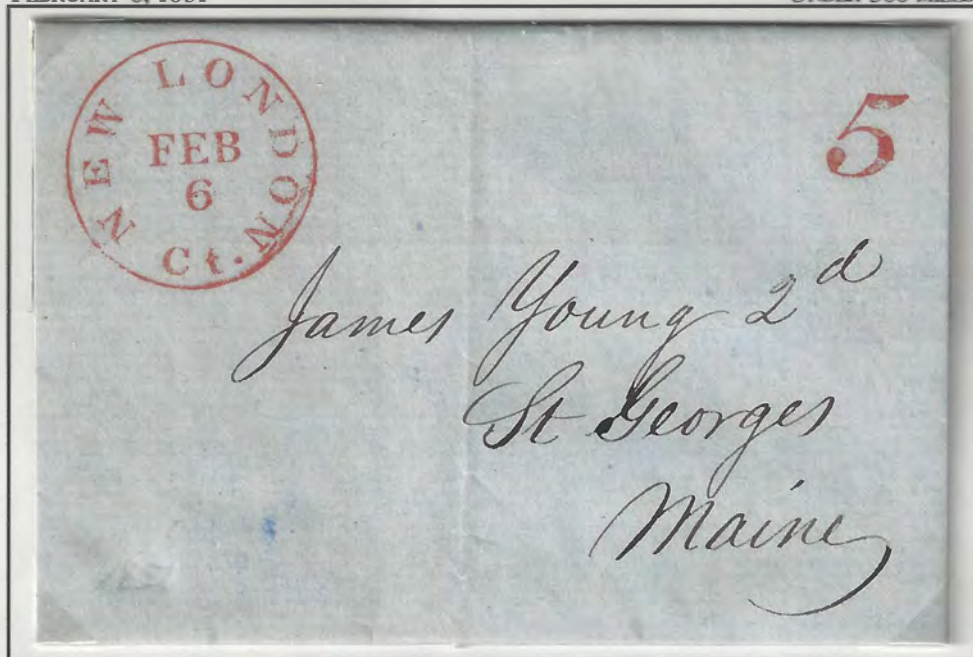 NEW LONDON
FEB
6
Ct.
5
James Young 2d
St Georges
Maine